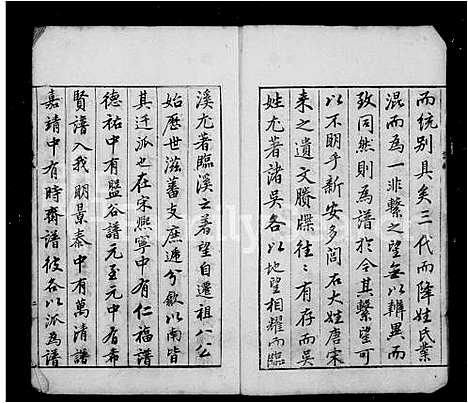 而統別具矣三代而降姓氏業
混而為一非繫之望無以辨異而
致同然則為譜於今其繫望可
以不明乎新安多閥右大姓唐宋
来之遺文賸牒往往有存而吳
姓尤著諸吳各以地望相耀而臨
溪尤著臨溪之著望自遷祖八公
始歷世滋蕃支庶遞分歙以南皆
其迁派也在宋熙寧中有仁福譜
德祐中有盤谷譜元至元中有希
賢譜入我明景泰中有萬清譜
嘉靖中有時齋譜彼各以派為譜